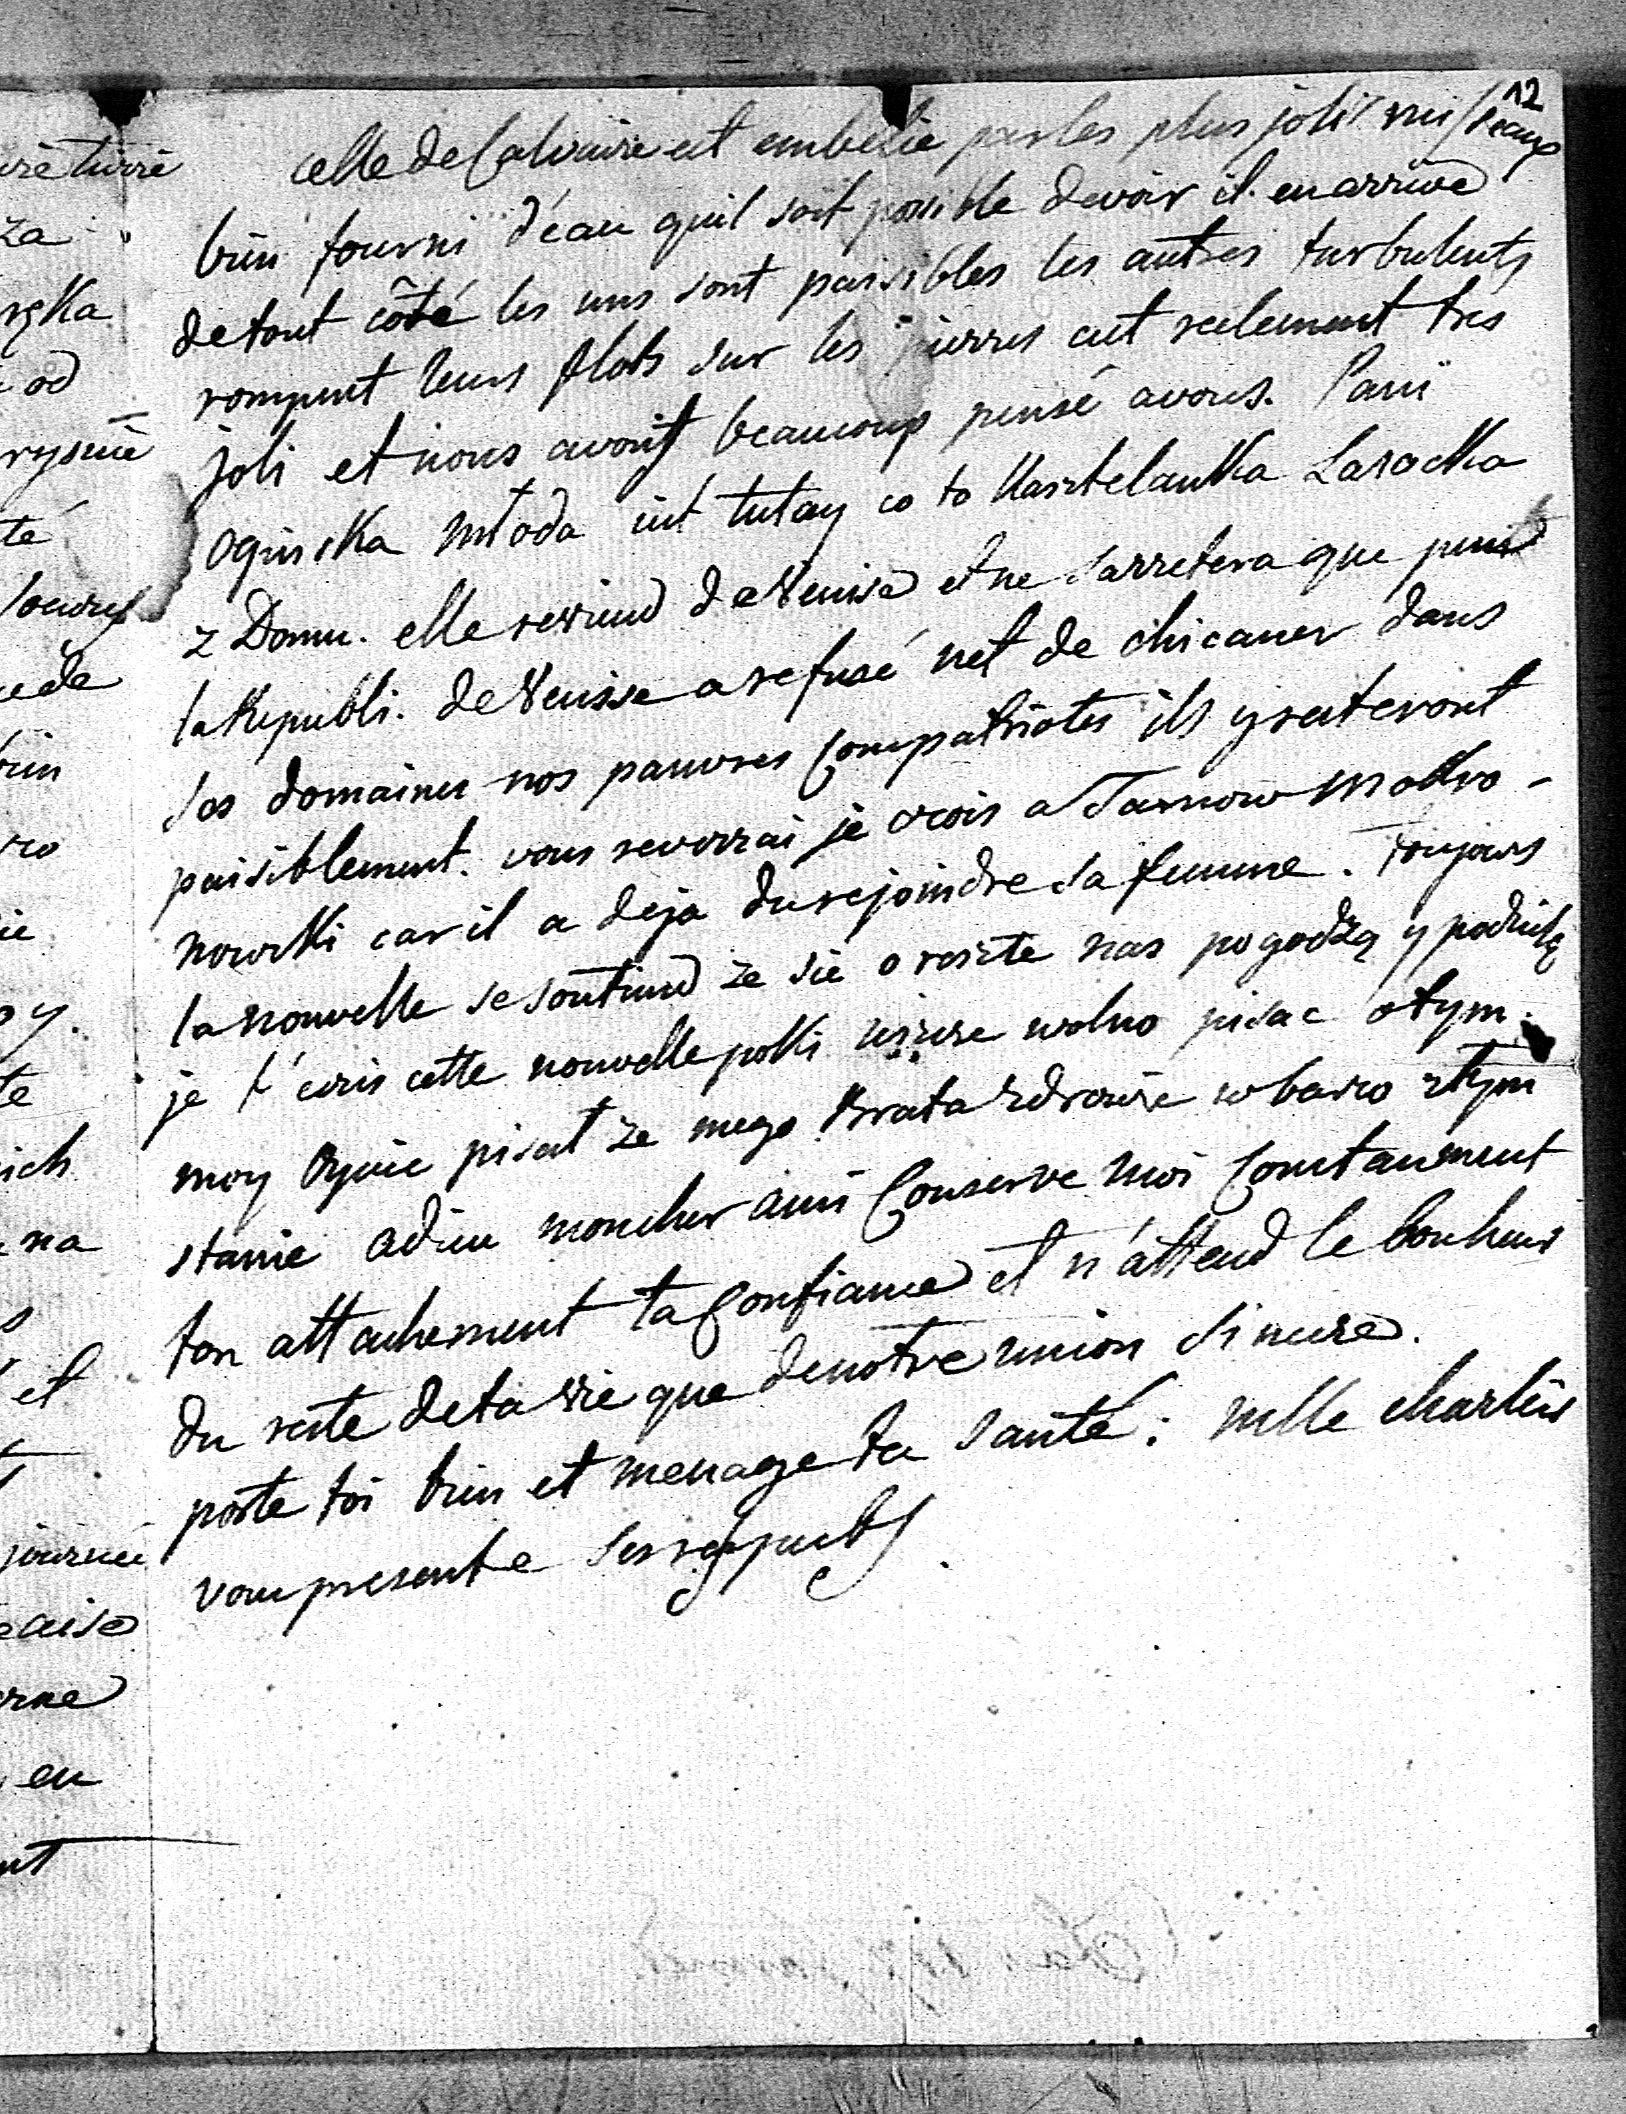 12
celle de Calvaire est embelie par les plus joli ruisseaux
bien fourni d'eau quil soit possible de voir il en arrive
de tout côté les uns sont paisibles les autres turbulents
rompent leurs flots sur les pierres cest reelement trés
joli et nous avont beaucoup pensé a vous. Pani
Oginska Młoda iest tutay co to Kasztelanka Lasocka
z Domu. elle reviend de Venise et ne sarretera que peu
la Republi. de Venisse a refusé net de chicaner dans
ses domaines nos pauvres Compatriotes ils y resteront
paisiblement. vous reverrai je crois a Tarnow Mokro-
nowski car il a deja du rejoindre sa femme. Toujours
la nouvelle se soutiend ze sie o reszte nas pogodzą y podzielą
je t'ecris cette nouvelle polki ieszcze wolno pisac o tym.
moy Oyciec pisał ze mego Brata zdrowie w bardzo złym
stanie adieu mon cher ami Conserve moi Constanment
ton attachement ta Confiance et n'attend le bonheur
du reste de ta vie que de notre union sincere.
porte toi bien et menage ta santé: mlle charlus
vous presente ses respects
urè turrè
za
ręka
od
rysuie
té
soeurs
cede
bien
ro
ie
y.
te
ich
na
et
journée
aise
erne
en
nt